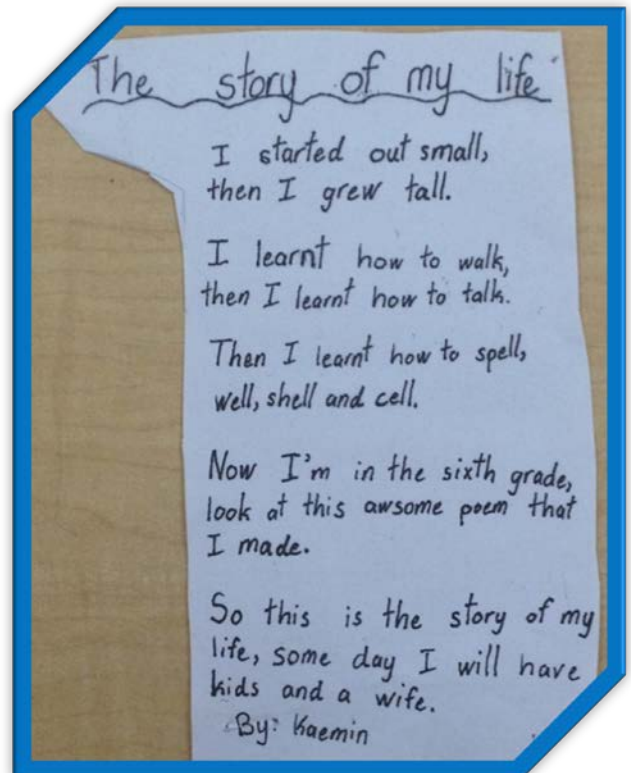 The story of my life
I started out small,
then I grew tall.
I learnt how to walk,
then I learnt how to talk.
Then I learnt how to spell,
well, shell and cell.
Now I'm in the sixth grade,
look at this awsome poem that
I made.
So this is the story of my
life, some day I will have
kids and a wife.
By: Kaemin